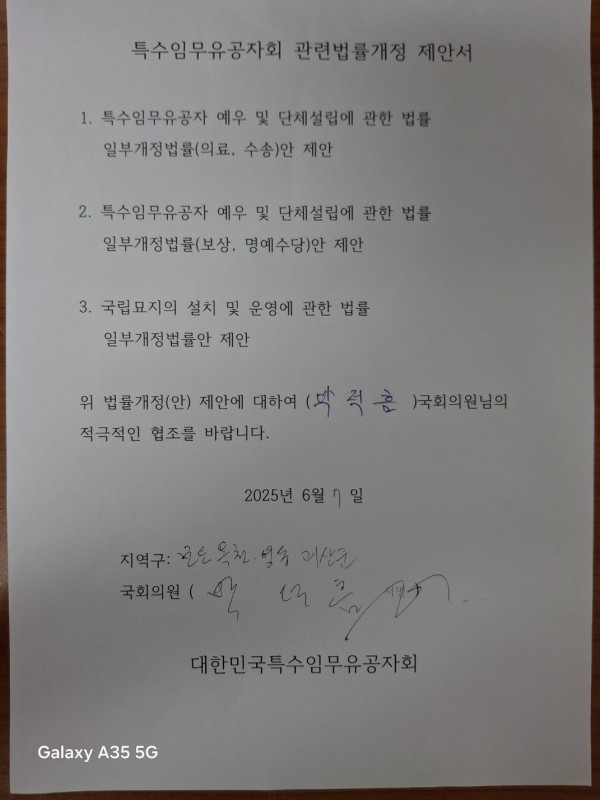 특수임무유공자회 관련법률개정 제안서
1. 특수임무유공자 예우 및 단체설립에 관한 법률
일부개정법률(의료, 수송)안 제안
2. 특수임무유공자 예우 및 단체설립에 관한 법률
일부개정법률(보상, 명예수당)안 제안
3. 국립묘지의 설치 및 운영에 관한 법률
일부개정법률안 제안
위 법률개정(안) 제안에 대하여 (박덕흠 )국회의원님의
적극적인 협조를 바랍니다.
2025년 6월 7 일
지역구: 보은 옥천 영동 괴산군
국회의원 ( 박 덕 흠
대한민국특수임무유공자회
Galaxy A35 5G